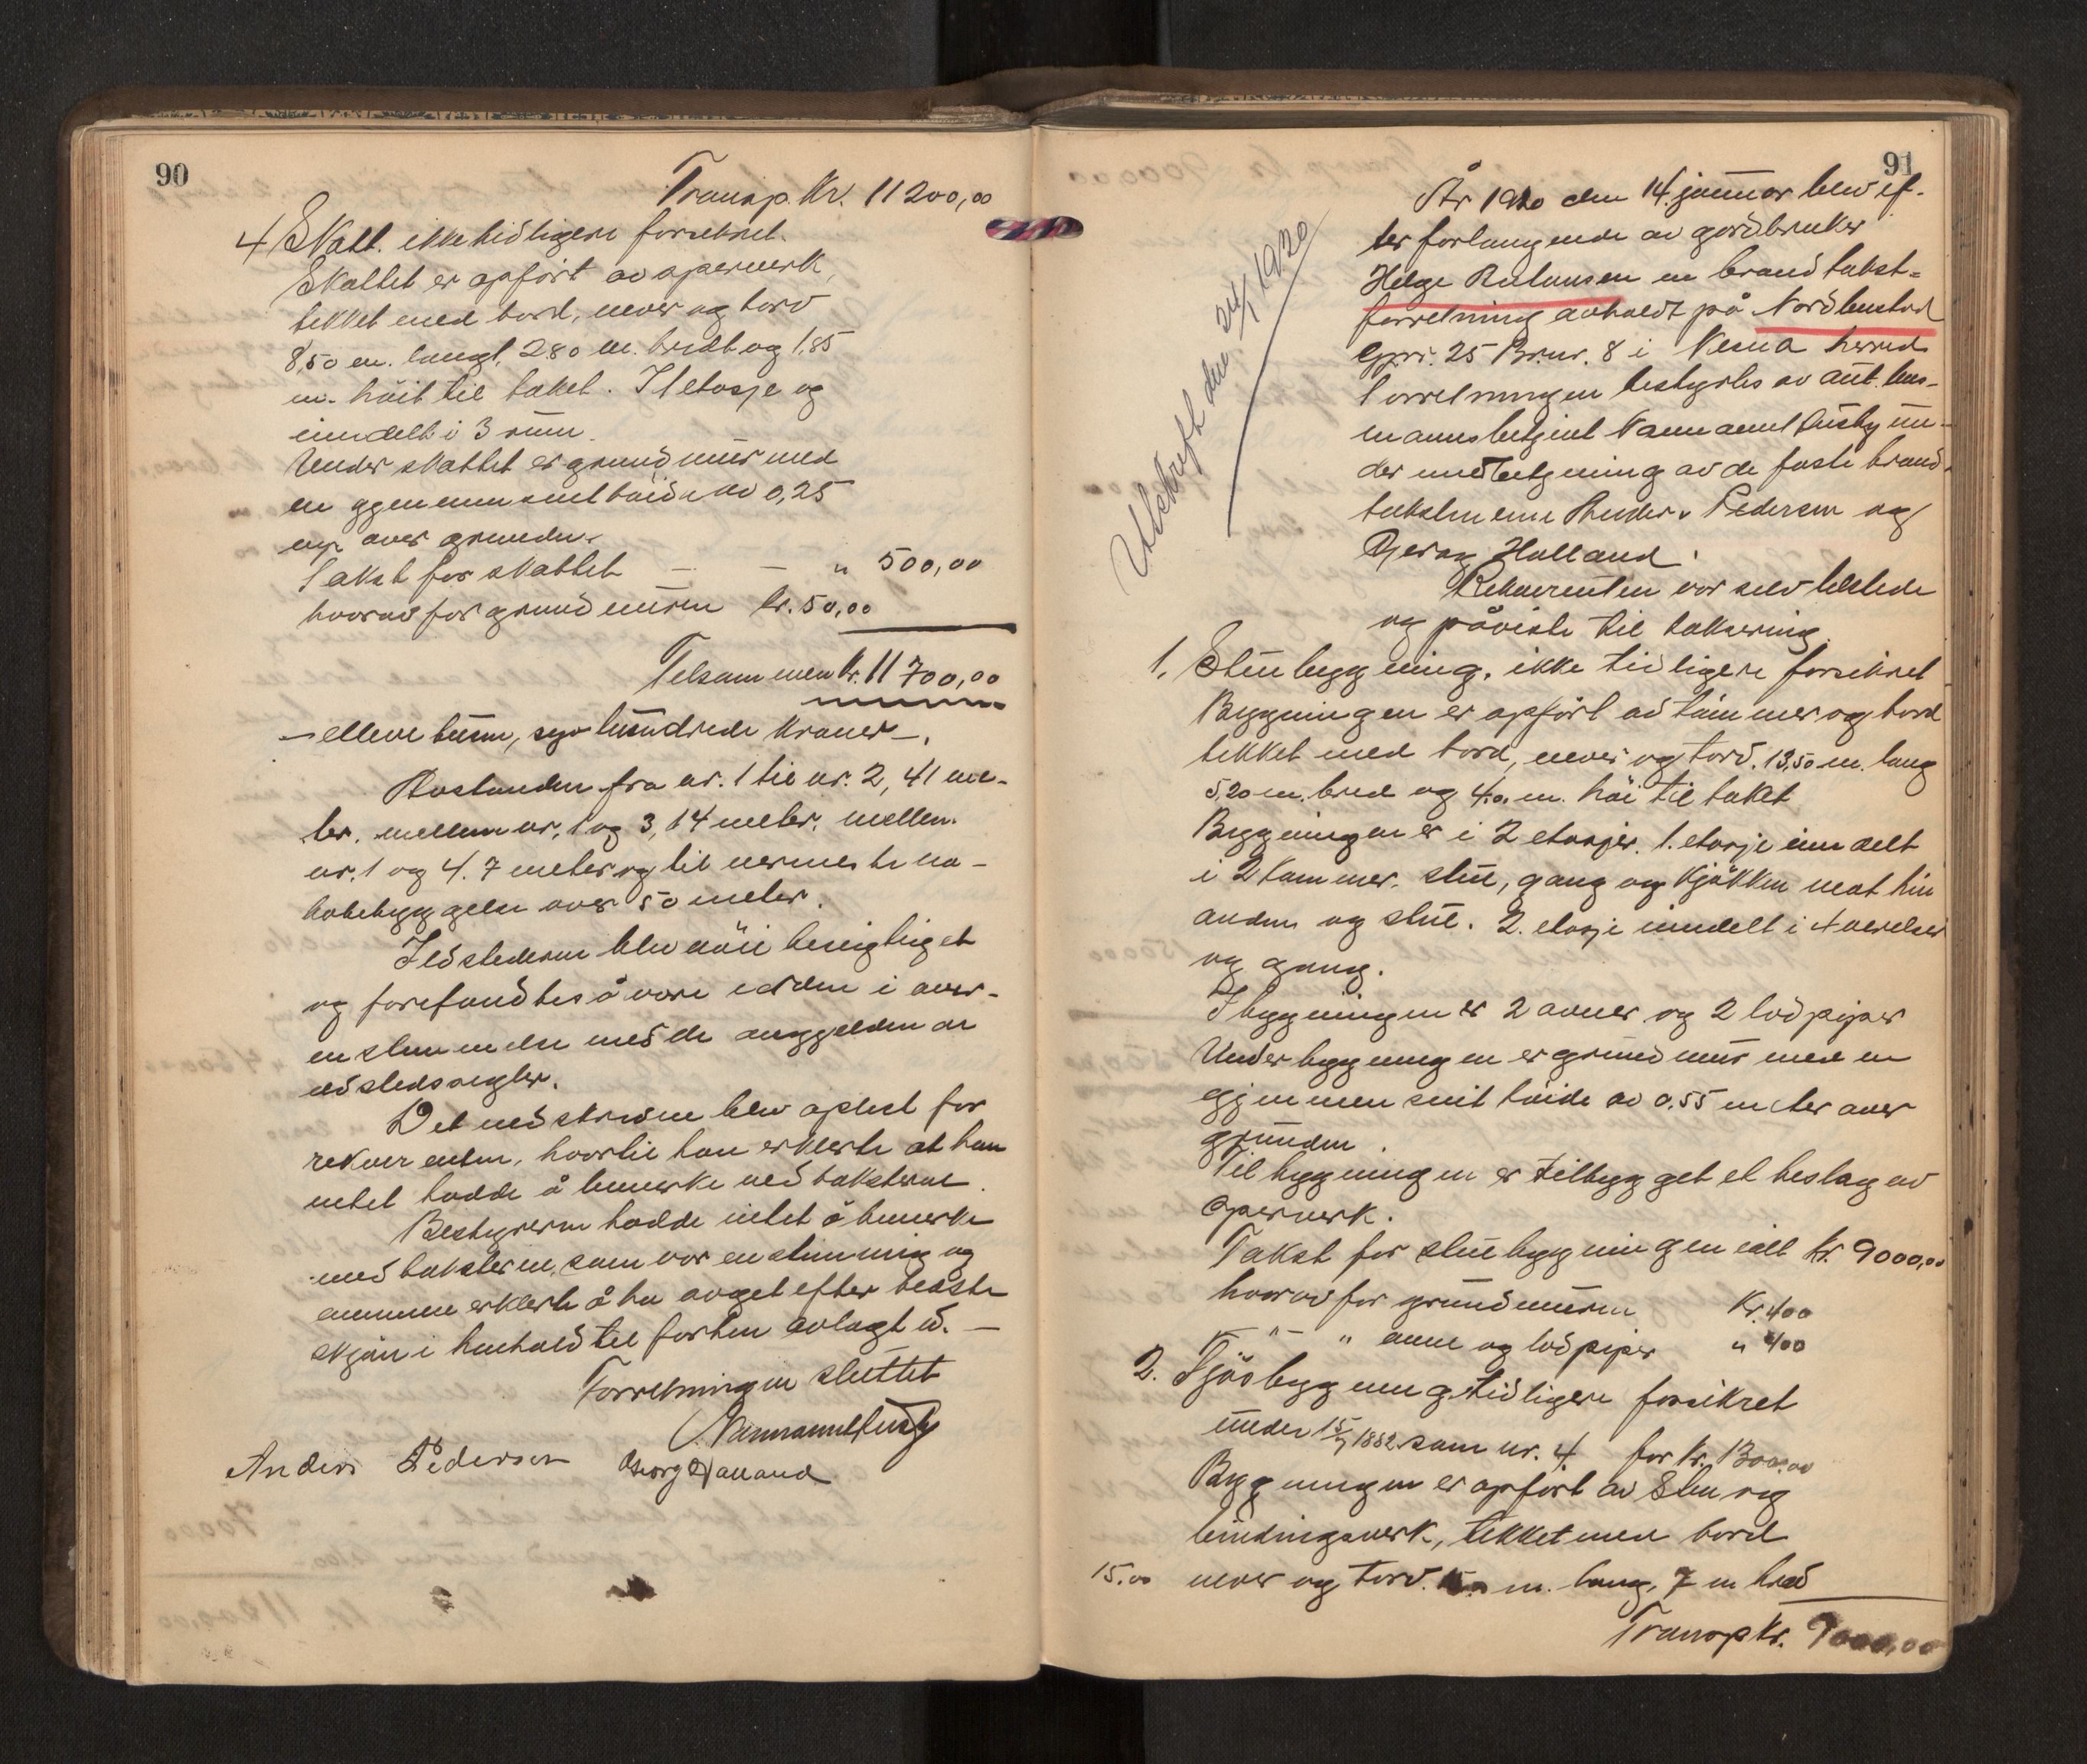 90
Transp. Kr. 11200,00
4 Skatt. ikke tidligere forsikret.
Skattet er opfört av sperverk,
tekket med bord, never og torv
8,50 m. langt, 2.80 m. bredt og 1,85
m. höit til taket. I 1 etasje og
inndelt i 3 rum.
Under skattet er grundmur med
en gjennemsnitshöide av 0,25
m over grunden.
Takst for skattet — — " 500,00
hvorav for grundmuren kr. 50,00
Tilsammen kr. 11700,00
— elleve tusen, syv hundrede kroner —.
Avstanden fra nr. 1 til nr. 2, 41 me-
ter. mellem nr. 1 og 3, 14 meter. mellem
nr. 1 og 4. 7 meter og til nermeste na-
bobebyggelse over 50 meter.
Ildstederne blev nöie besigtiget
og forefandtes å være i orden i over-
ensstemmelse med de angjeldende
ildstedsregler.
Det nedskrevne blev oplest for
rekvirenten, hvortil han erklerte at han
intet hadde å bemerke ved taksterne.
Bestyreren hadde intet å bemerke
med taksterne, som var enstemmig og
mennene erklerte å ha avgit efter beste
skjön i henhold til fortin avlagt ed. —
Forretningen sluttet
Anders Pedersen Georg Halland
91
Utskrift den 24/1 1920
År 1920 den 14. januar blev ef-
ter forlangende av gårdbruker
Helge Rulansen en brandtakst-
forretning avholdt på Nordbustad
Gnr. 25 Brnr. 8 i Nesna herred.
Forretningen bestyrtes av aut. lens-
mannsbetjent Normann Husby un-
der medbetjening av de faste brand-
takstmenn Anders Pedersen og
Georg Halland.
Rekvirenten var selv tilstede
og påviste til taksering
1. Stuebygning. ikke tidligere forsikret
Bygningen er opfört av tömmer og bord
tekket med bord, never og torv. 13,50 m. lang
5,20 m. bred og 4,0 m. höi til taket
Bygningen er i 2 etasjer. 1. etasje inndelt
i 2 kammer. stue, gang og kjökken mot hin
anden og stue. 2. etasje inndelt i 4 verelser
og gang.
I bygningen er 2 ovner og 2 lodpiper
Under bygningen er grundmur med en
gjennemsnit höide av 0,55 meter over
grunden.
Til bygningen er tilbygget et beslag av
sperverk.
Takst for stuebygningen ialt kr. 9000,00
hvorav for grundmuren Kr. 400
— " — " ovne og lodpiper " 400
2. Fjösbygning tidligere forsikret
under 15/7 1882 som nr. 4. for kr. 1300,00
Bygningen er opfört av Sten og
bindingsverk, tekket med bord
15.00 never og torv. m. lang, 7 m bred
Transp kr. 9000,00